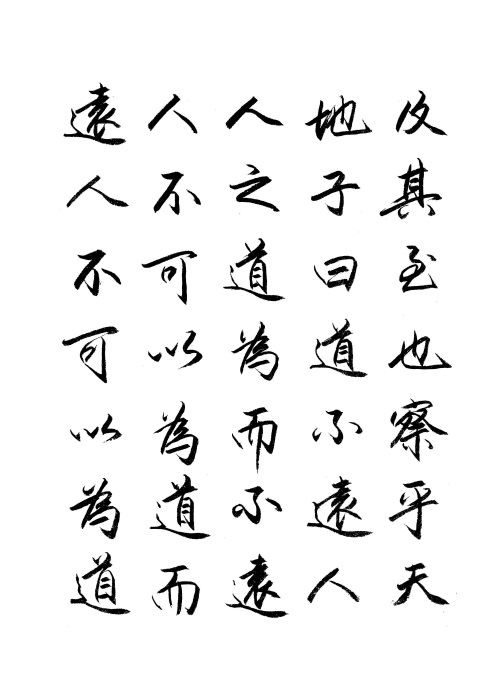 及其至也察乎天
地子曰道不遠人
人之道為而不遠
人不可以為道而
遠人不可以為道